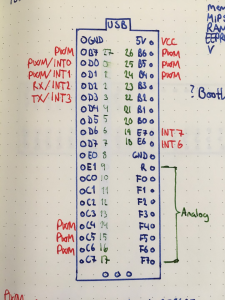 USB
Mem
MIPS
RAM
EEPR
V
GND 5V VCC
PWM B7 27 26 B6 PWM
PWM/INT0 D0 25 B5 PWM
PWM/INT1 D1 24 B4 PWM
RX/INT2 D2 23 B3
TX/INT3 D3 22 B2
D4 21 B1
D5 5 20 B0
D6 6 19 E7 INT7
D7 7 18 E6 INT6
E0 8 GND
E1 9 R
C0 10 F0
C1 11 F1
C2 12 F2
C3 13 F3
PWM C4 14 F4
PWM C5 15 F5
PWM C6 16 F6
C7 17 F7
? Bootl
Analog
PWM